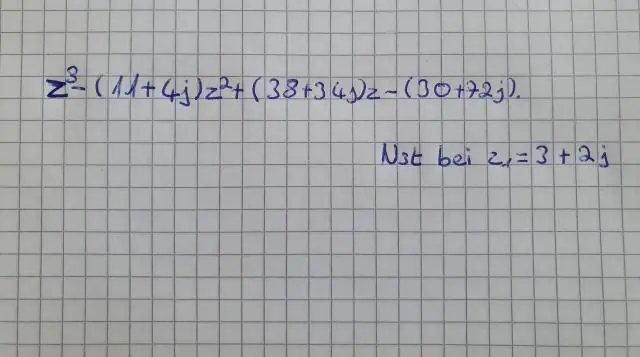 z³-(11+4j)z²+(38+34j)z-(30+72j).
Nst bei z₁=3+2j